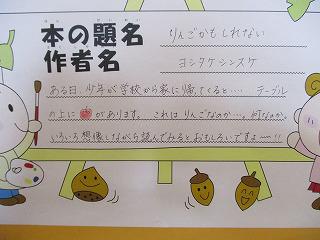 本の題名 りんごかもしれない
作者名 ヨシタケシンスケ
ある日、少年が学校から家に帰ってくると… テーブル
の上に🍎があります。これはりんごなのか…。何なのか。
いろいろ想像しながら読んでみるとおもしろいですよ〜!!